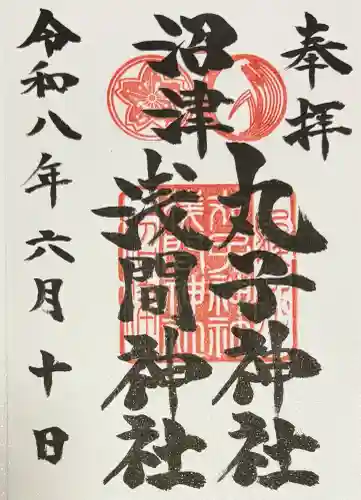 奉拝
沼津
丸子神社
浅間神社
令和八年六月十日